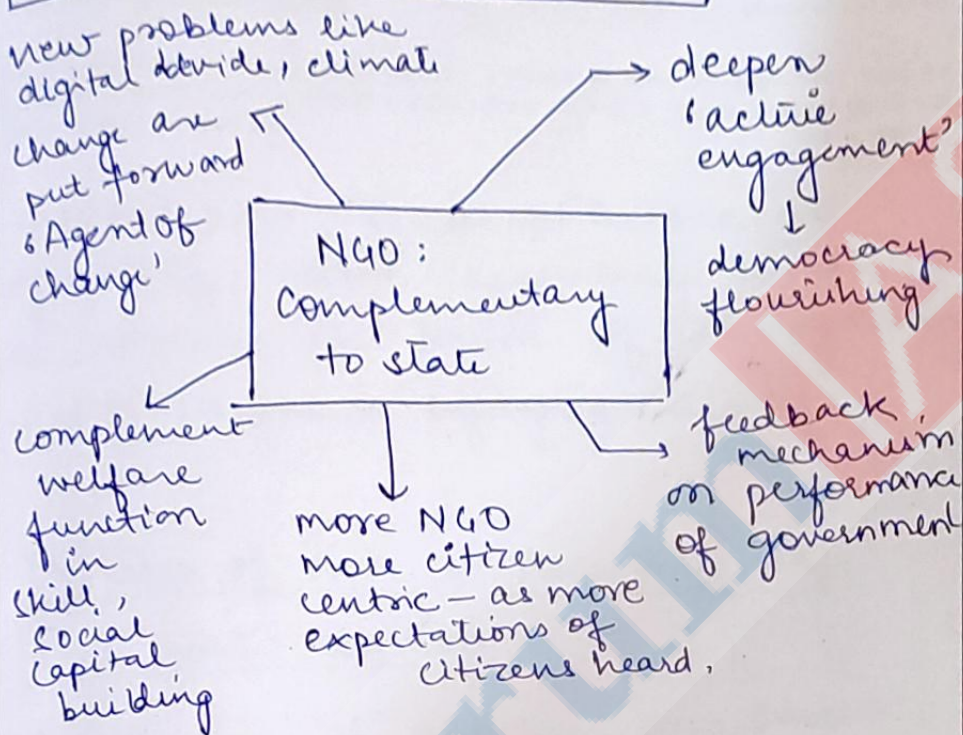 new problems like
digital devide, climate
change are
put forward
'Agent of
change'
deepen
'active
engagement'
↓
democracy
flourishing
NGO:
complementary
to state
complement
welfare
function
in
skill,
social
capital
building
more NGO
more citizen
centric – as more
expectations of
citizens heard.
feedback
mechanism
on performance
of government
rum IAS